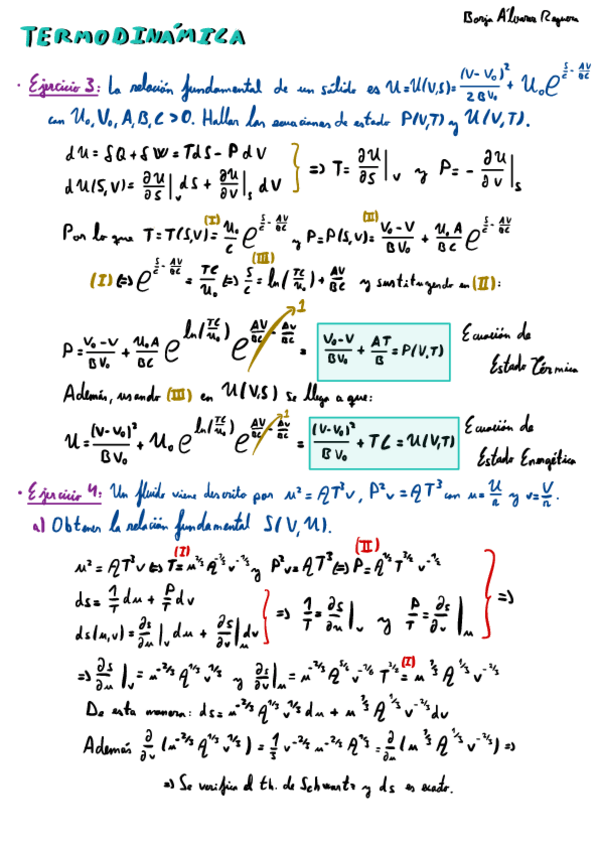 Borja Álvarez Reguera
TERMODINÁMICA
· Ejercicio 3: La relación fundamental de un sólido es U=U(V,S)= (V-V₀)²/2BV₀ + U₀e^(S/C - AV/BC)
con U₀, V₀, A, B, C > 0. Hallar las ecuaciones de estado P(V,T) y U(V,T).
dU = δQ + δW = TdS - PdV
dU(S,V) = ∂U/∂S|v dS + ∂U/∂V|s dV } => T = ∂U/∂S|v y P = - ∂U/∂V|s
Por lo que T = T(S,V) (I)= U₀/C e^(S/C - AV/BC) y P = P(S,V) (II)= V₀-V/BV₀ + U₀A/BC e^(S/C - AV/BC)
(I) <=> e^(S/C - AV/BC) = TC/U₀ <=> (III) S/C = ln(TC/U₀) + AV/BC y sustituyendo en (II):
P = V₀-V/BV₀ + U₀A/BC e^ln(TC/U₀) e^(AV/BC - AV/BC) →1 = V₀-V/BV₀ + AT/B = P(V,T) Ecuación de
Estado Térmica
Además, usando (III) en U(V,S) se llega a que:
U = (V-V₀)²/BV₀ + U₀ e^ln(TC/U₀) e^(AV/BC - AV/BC) →1 = (V-V₀)²/BV₀ + TC = U(V,T) Ecuación de
Estado Energética
· Ejercicio 4: Un fluido viene descrito por u² = AT³v, P²v = AT³ con u = U/n y v = V/n.
a) Obtener la relación fundamental S(V,U).
u² = AT³v <=> (I) T = u^2/3 A^-1/3 v^-1/3 y P²v = AT³ <=> (II) P = A^1/2 T^3/2 v^-1/2
ds = 1/T du + P/T dv
ds(u,v) = ∂s/∂u|v du + ∂s/∂v|u dv } => 1/T = ∂s/∂u|v y P/T = ∂s/∂v|u } =>
=> ∂s/∂u|v = u^-2/3 A^1/3 v^1/3 y ∂s/∂v|u = u^-2/3 A^5/6 v^-1/6 T^3/2 (I)= u^1/3 A^1/3 v^-2/3
De esta manera: ds = u^-2/3 A^1/3 v^1/3 du + u^1/3 A^1/3 v^-2/3 dv
Además ∂/∂v (u^-2/3 A^1/3 v^1/3) = 1/3 v^-2/3 u^-2/3 A^1/3 = ∂/∂u (u^1/3 A^1/3 v^-2/3) =>
=> Se verifica el th. de Schwartz y ds es exacto.